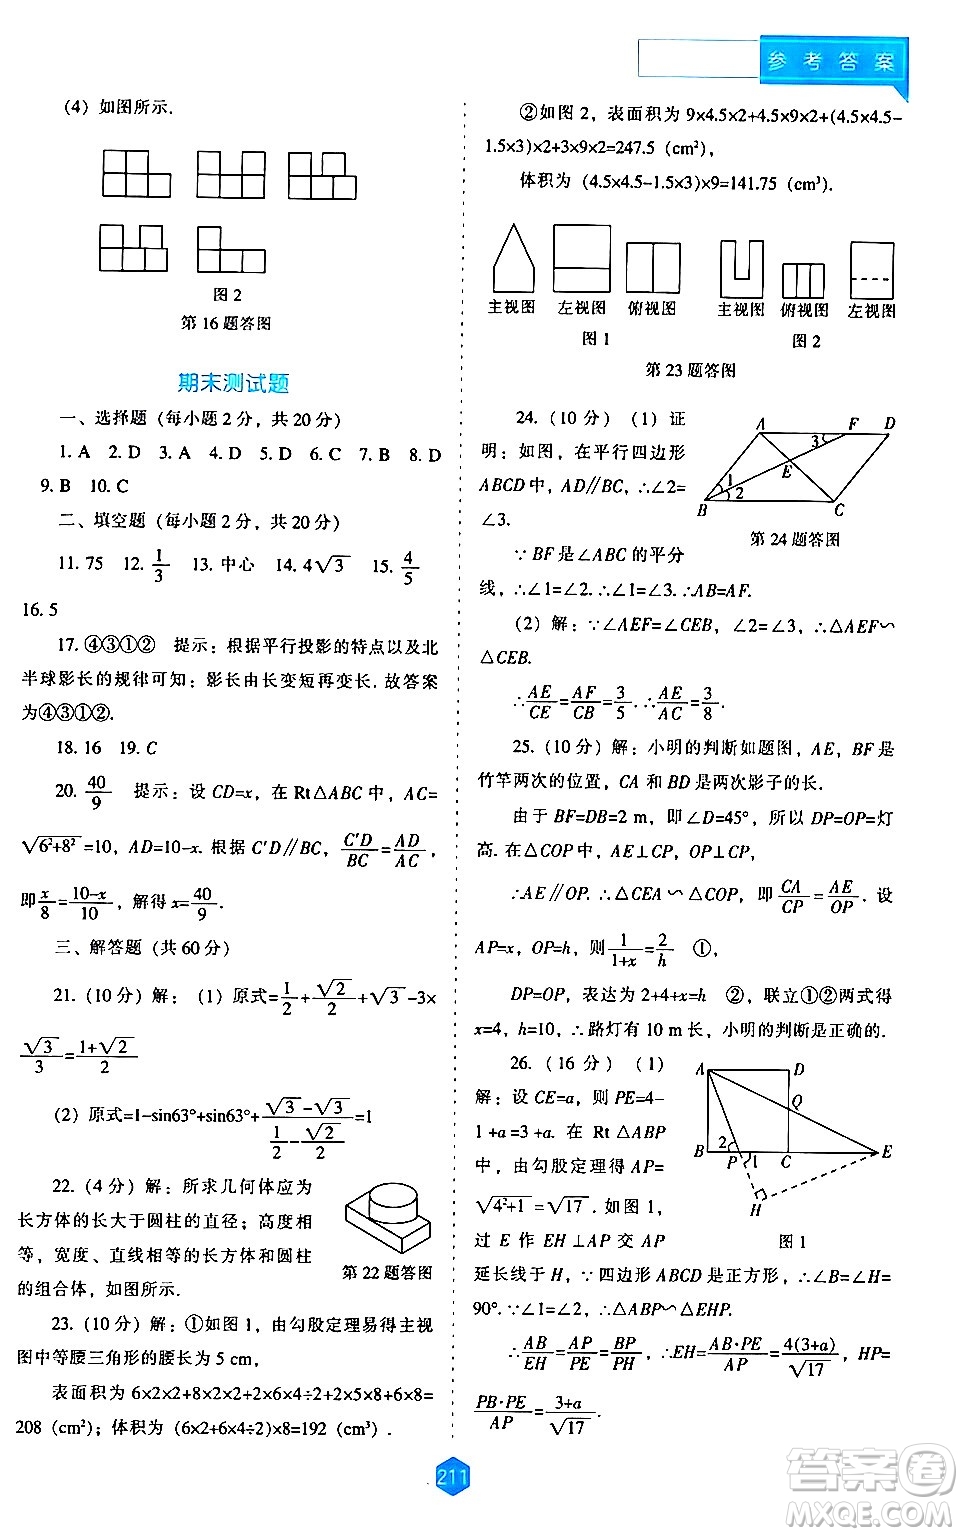 参考答案
(4) 如图所示.
图 2
第 16 题答图
期末测试题
一、选择题（每小题 2 分，共 20 分）
1. A  2. D  3. A  4. D  5. A  6. A  7. B  8. D
9. B  10. C
二、填空题（每小题 2 分，共 20 分）
11. 75  12. 1/3  13. 中心  14. 4√3  15. 4/5
16. 5
17. ④③①②  提示：根据平行投影的特点以及北
半球影长的规律可知：影长由长变短再变长. 故答案
为④③①②.
18. 16  19. C
20. 40/9  提示：设 CD=x，在 Rt△ABC 中，AC=
√(6²+8²)=10，AD=10-x. 根据 C′D∥BC，C′D/BC=AD/AC，
即x/8=(10-x)/10，解得 x=40/9.
三、解答题（共 60 分）
21. (10 分) 解：(1) 原式=1/2+√2/2+√3-3×
√3/3=(1+√2)/2
(2) 原式=1-sin63°+sin63°+(√3-√3)/(1/2-√2/2)=1
22. (4 分) 解：所求几何体应为
长方体的长大于圆柱的直径；高度相
等，宽度、直线相等的长方体和圆柱
的组合体，如图所示.
第 22 题答图
23. (10 分) 解：①如图 1，由勾股定理易得主视
图中等腰三角形的腰长为 5 cm，
表面积为 6×2×2+8×2×2+6×4÷2×2+5×8+6×8=
208 (cm²)；体积为 (6×2+6×4÷2)×8=192 (cm³).
②如图 2，表面积为 9×4.5×2+4.5×9×2+(4.5×4.5-
1.5×3)×2+3×9×2=247.5 (cm²)，
体积为 (4.5×4.5-1.5×3)×9=141.75 (cm³).
主视图 左视图 俯视图 主视图 俯视图 左视图
图 1 图 2
第 23 题答图
24. (10 分) (1) 证
明：如图，在平行四边形
ABCD 中，AD∥BC，∴∠2=
∠3.
A F D
3
E
1
2
B C
第 24 题答图
∵ BF 是∠ABC 的平分
线，∴∠1=∠2. ∴∠1=∠3. ∴AB=AF.
(2) 解：∵∠AEF=∠CEB，∠2=∠3，∴△AEF∽
△CEB.
∴AE/CE=AF/CB=3/5. ∴AE/AC=3/8.
25. (10 分) 解：小明的判断如题图，AE，BF 是
竹竿两次的位置，CA 和 BD 是两次影子的长.
由于 BF=DB=2 m，即∠D=45°，所以 DP=OP=灯
高. 在△COP 中，AE⊥CP，OP⊥CP，
∴AE∥OP. ∴△CEA∽△COP，即 CA/CP=AE/OP. 设
AP=x，OP=h，则 1/(1+x)=2/h ①，
DP=OP，表达为 2+4+x=h ②，联立①②两式得
x=4，h=10，∴路灯有 10 m 长，小明的判断是正确的.
26. (16 分) (1)
解：设 CE=a，则 PE=4-
1+a=3+a. 在 Rt△ABP
中，由勾股定理得 AP=
√(4²+1)=√17. 如图 1，
过 E 作 EH⊥AP 交 AP
A D
Q
B 2 P 1 C E
H
图 1
延长线于 H，∵四边形 ABCD 是正方形，∴∠B=∠H=
90°. ∵∠1=∠2，∴△ABP∽△EHP.
∴AB/EH=AP/PE=BP/PH，∴EH=AB·PE/AP=4(3+a)/√17，HP=
PB·PE/AP=(3+a)/√17.
211
答案圈
MXQE.COM